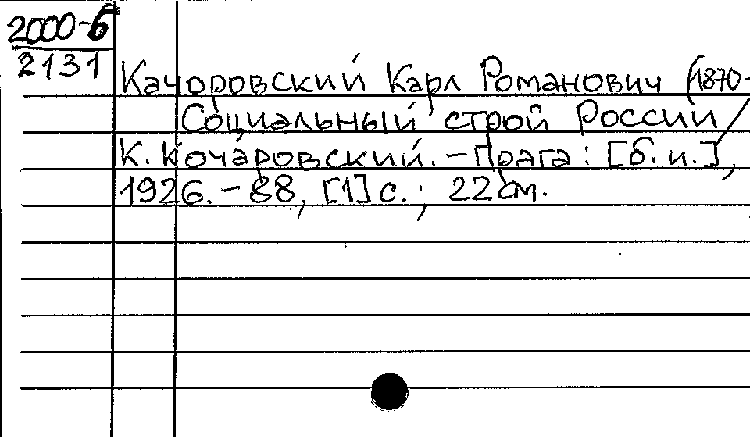 2000-5
2131
Качоровский Карл Романович (1870-
Социальный строй России /
К. Кочаровский. - Прага: [б.и.],
1926. - 88, [1] с.; 22 см.